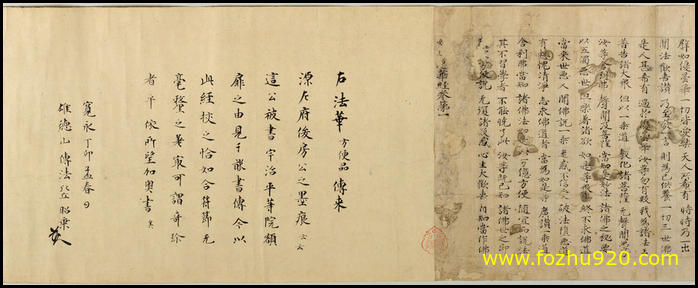 譬如優曇華 一切皆愛樂 天人所希有 時時乃一出
聞法歡喜讚 乃至發一言 則為已供養 一切三世佛
是人甚希有 過於優曇華 汝等勿有疑 我為諸法王
普告諸大眾 但以一乘道 教化諸菩薩 无聲聞弟子
汝等舍利弗 聲聞及菩薩 當知是妙法 諸佛之秘要
以五濁惡世 但樂著諸欲 如是等眾生 終不求佛道
當來世惡人 聞佛說一乘 迷惑不信受 破法墮惡道
有慚愧清淨 志求佛道者 當為如是等 廣讚一乘道
舍利弗當知 諸佛法如是 以万億方便 隨宜而說法
其不習學者 不能曉了此 汝等既已知 諸佛世之師
方便說 无復諸疑惑 心生大歡喜 自知當作佛
經卷第一
右法華方便品傳来
源左府俊房公之墨痕云云
這公被書宇治平等院額
扉之由見于書傳今以
此經挍之恰如合符節无
毫釐之差寔可謂奇珍
者乎依所望加奥書矣
寛永丁卯孟春日
雄德山傳法昭乗
www.fozhu920.com